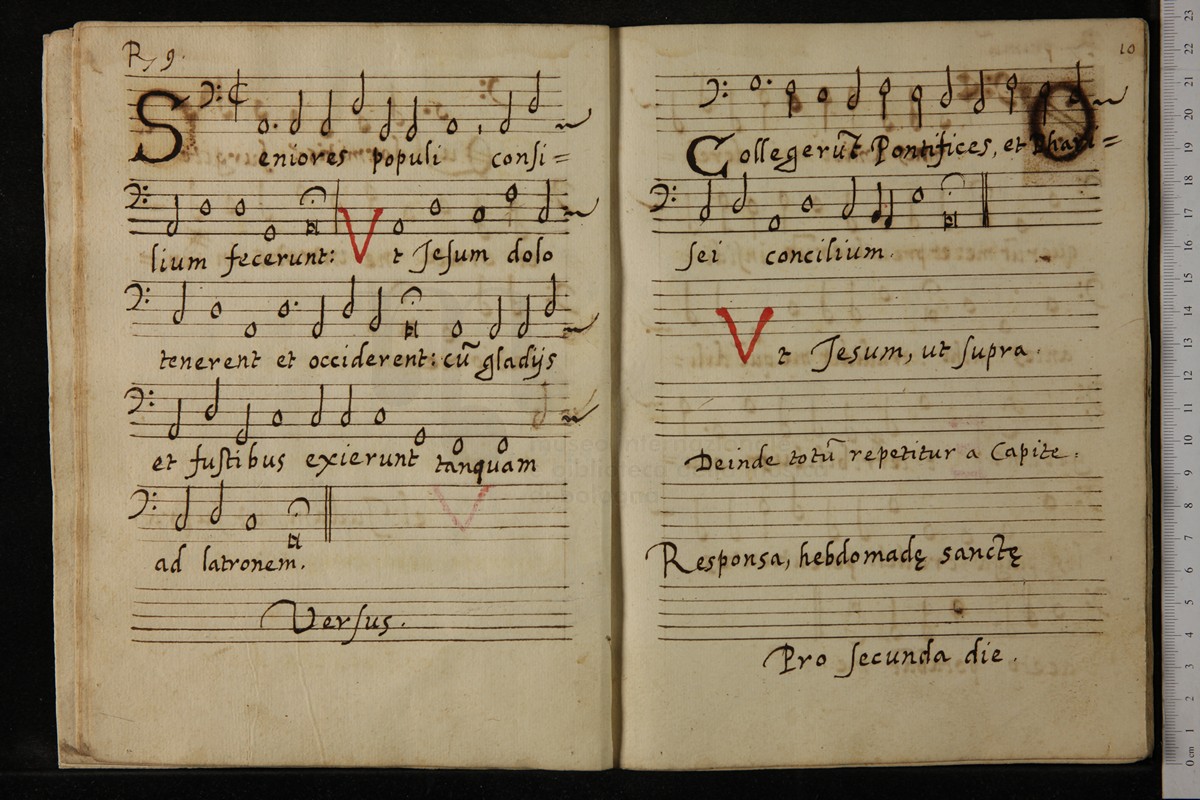 R 9.
Seniores populi consi=
lium fecerunt: Vt Jesum dolo
tenerent et occiderent: cū gladijs
et fustibus exierunt tanquam
ad latronem.
Versus.
10
Collegerūt Pontifices, et Phari=
sei concilium.
Vt Jesum, ut supra.
Deinde totū repetitur a Capite.
Responsa, hebdomadę sanctę
Pro secunda die.